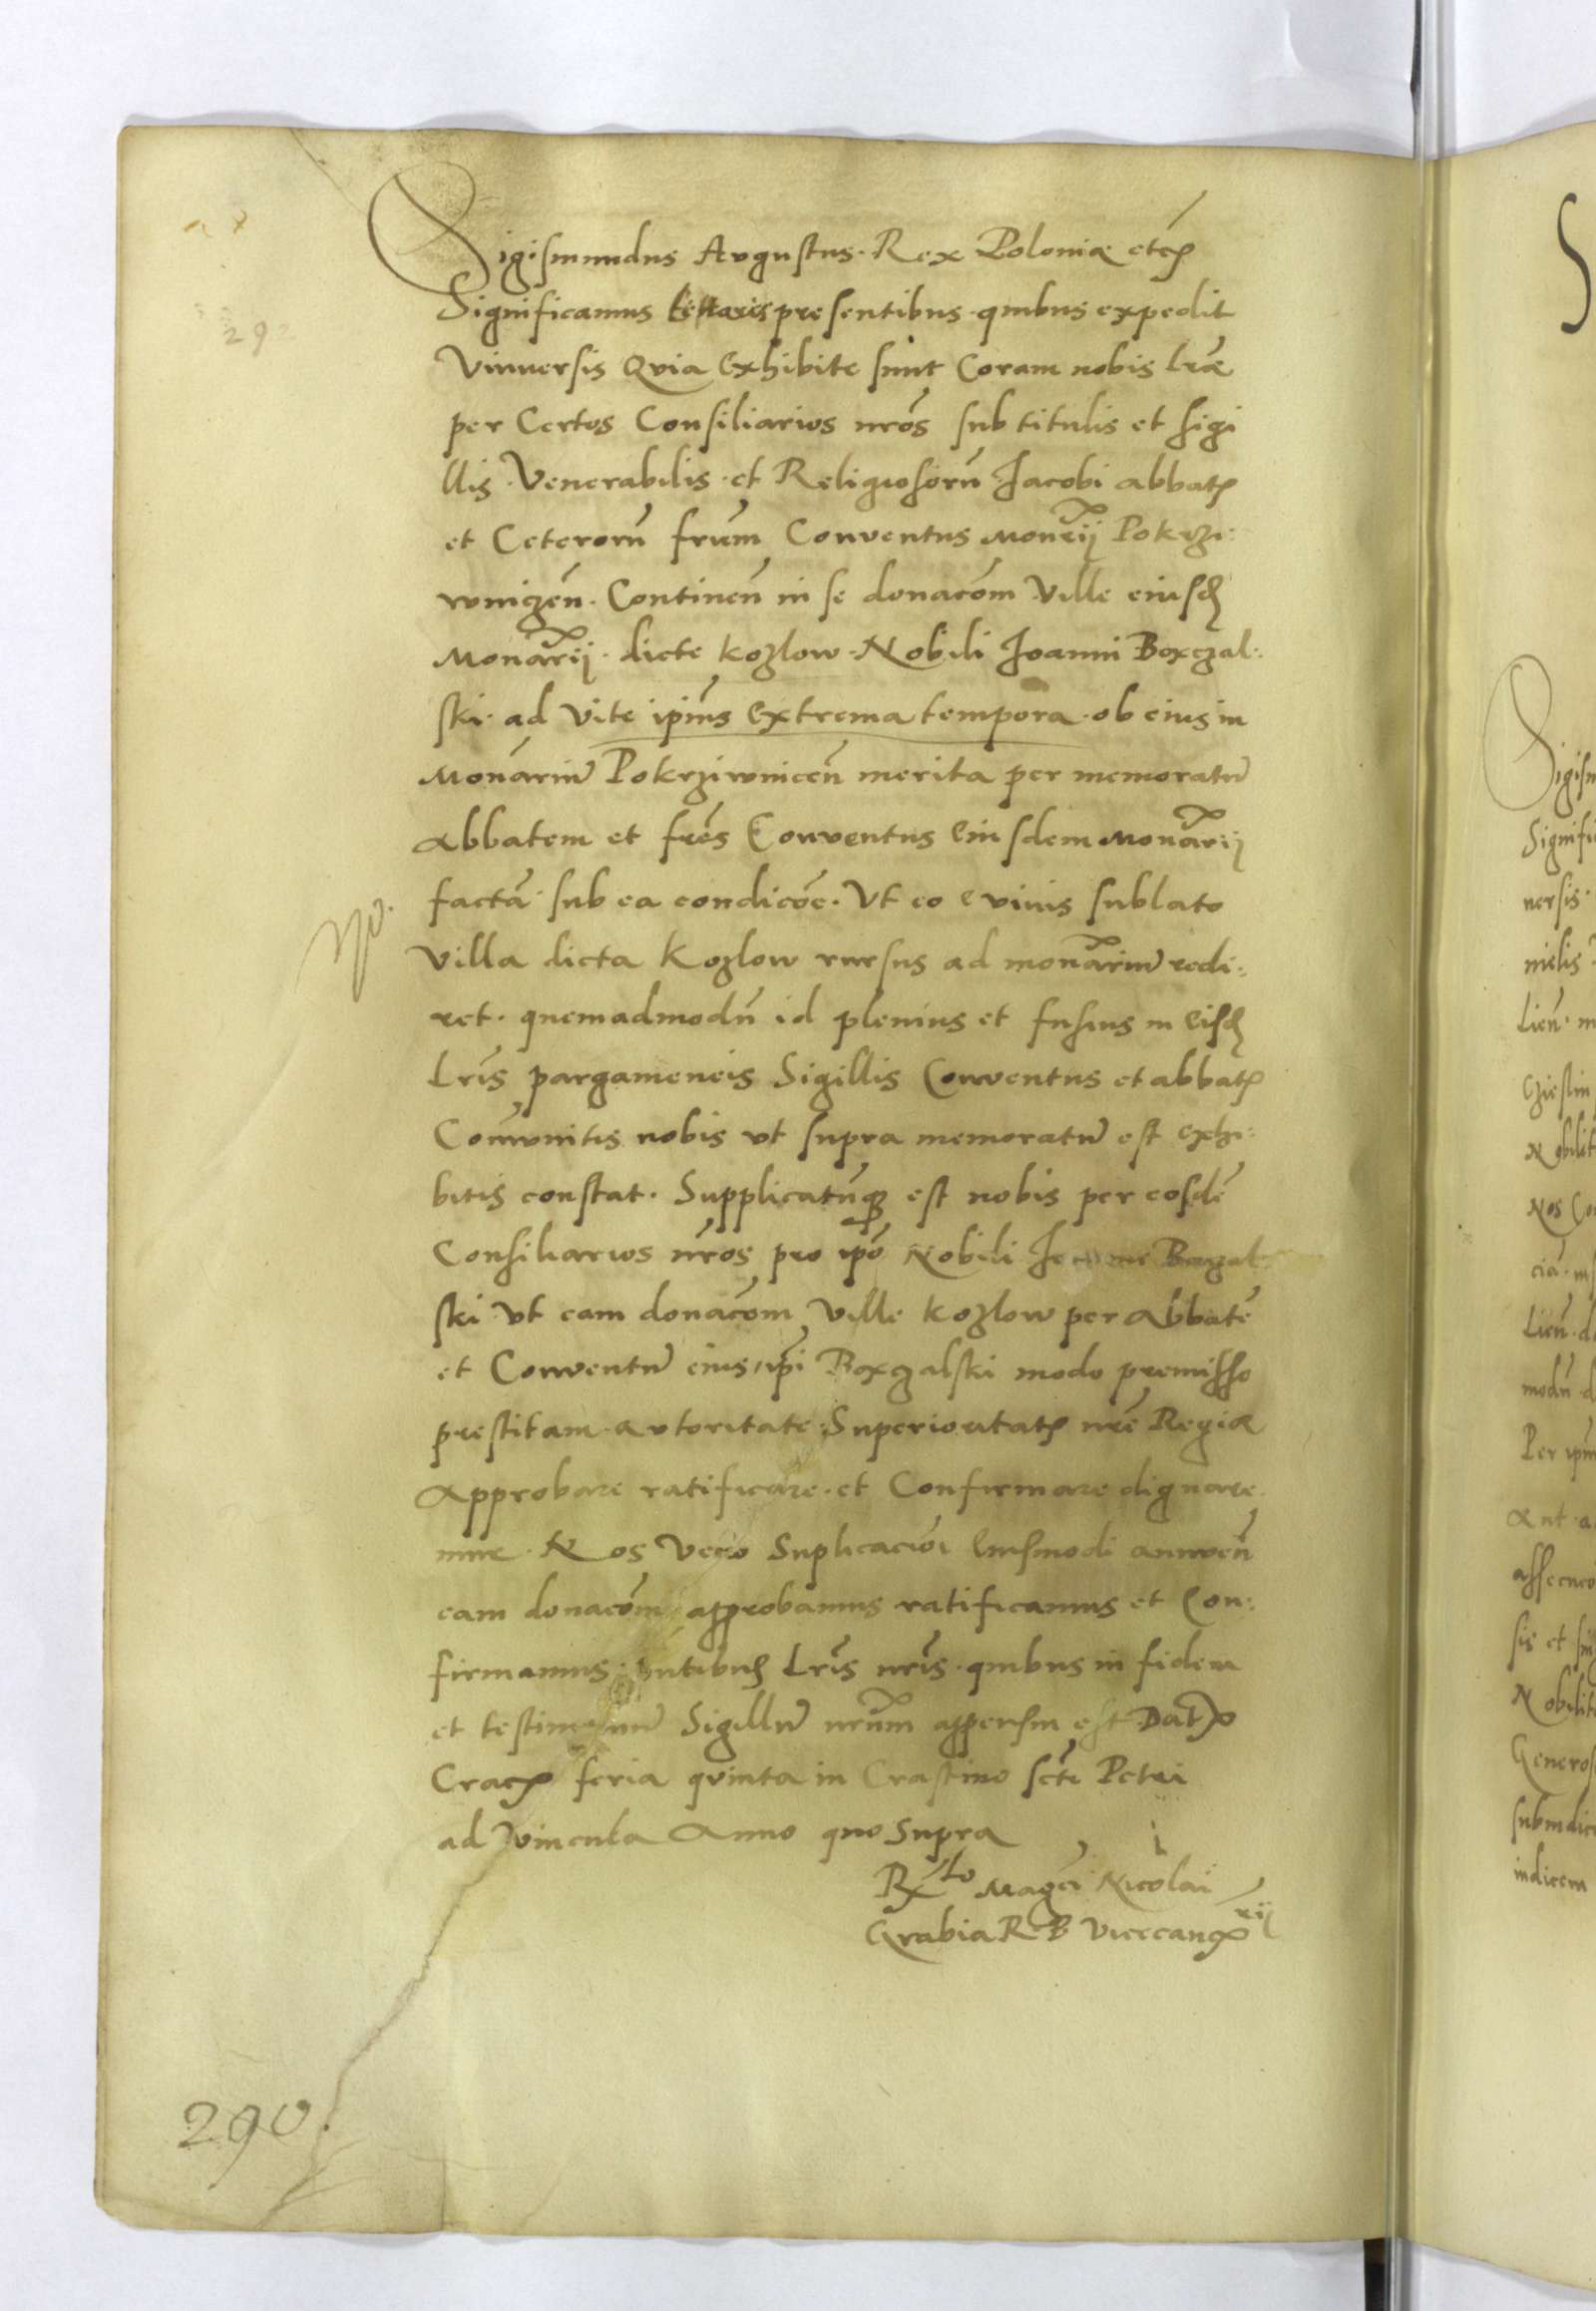 Sigismundus Augustus Rex Poloniæ etc
Significamus litteris presentibus quibus expedit
Vniuersis Qvia Exhibite sunt Coram nobis lræ
per Certos Consiliarios nros sub titulis et sigi
llis Venerabilis et Religiosorũ Jacobi abbatis
et Ceterorũ frum Conventus monrij Pokrzi:
wniczeñ. Contineñ in se donacõm Ville eiusd
Monarij dicte Kozlow Nobili Joanni Boxczal:
ski ad Vite ipius Extrema tempora ob eius in
Monariũ Pokrziwniceñ merita per memoratũ
Abbatem et fres Conventus Eiusdem Monarij
factã sub ea condicõe. Vt eo e viuis sublato
Villa dicta Kozlow rursus ad monariũ redi:
ret. quemadmodũ id plenius et fusius in Eisd
Lris pargameneis Sigillis Conventus et abbatis
Com̃vnitis nobis vt supra memoratũ est exhi:
bitis constat. Supplicatũq est nobis per eosdẽ
Consiliarios nros pro ipo Nobili
ski vt eam donacõm Ville Kozlow per Abbatẽ
et Conventũ eius ipi Boxczalski modo premisso
prestitam avtoritate Superioritatis nre Regiæ
Approbare ratificare et Confirmare dignare
mur. Nos Vero Suplicacioi Eiusmodi annueñ
eam donacõm approbamus ratificamus et Con:
firmamus Lris nris quibus in fidem
et testimoniũ Sigillũ nrum appensũ est Datis
Crac feria qvinta in Crastino scti Petri
ad Vincula Anno quo Supra
Rx to Magci Nicolai
Grabia R B Vicecanc rij
290.